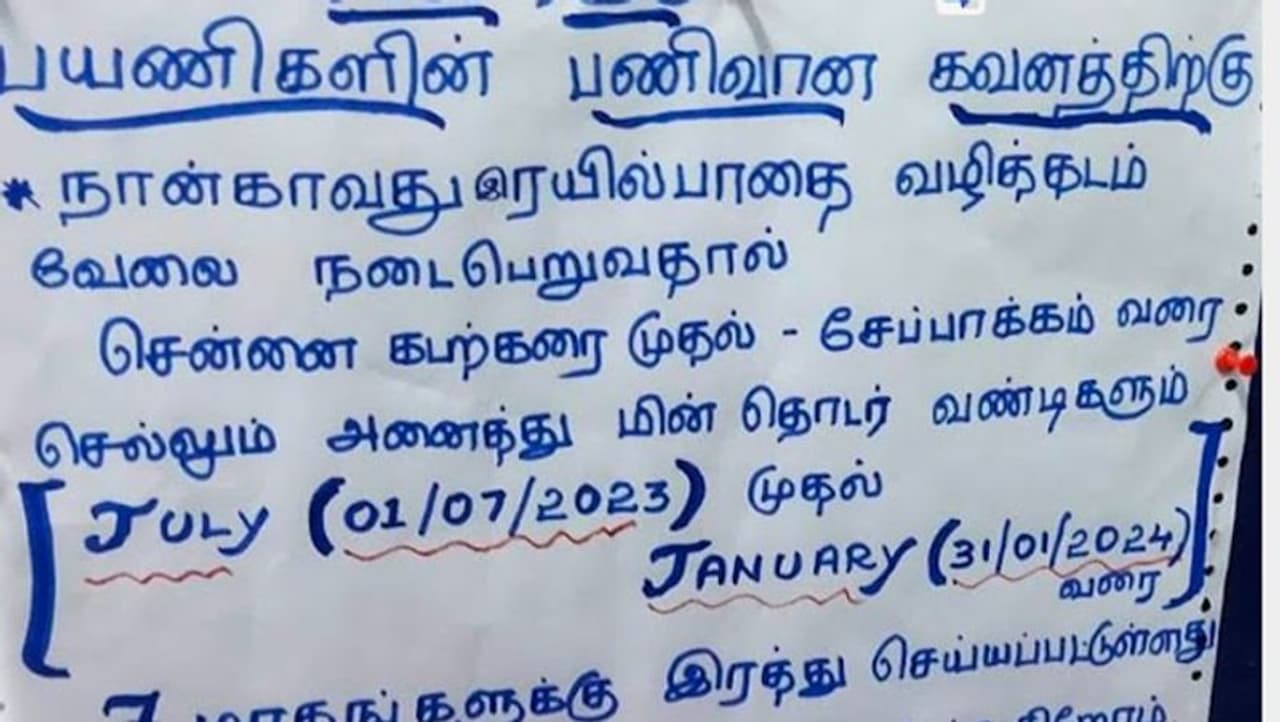 பயணிகளின் பணிவான கவனத்திற்கு
* நான்காவது இரயில்பாதை வழித்தடம்
வேலை நடைபெறுவதால்
சென்னை கடற்கரை முதல் - சேப்பாக்கம் வரை
செல்லும் அனைத்து மின் தொடர் வண்டிகளும்
[JULY (01/07/2023) முதல்
JANUARY (31/01/2024)
வரை]
7 மாதங்களுக்கு இரத்து செய்யப்பட்டுள்ளது